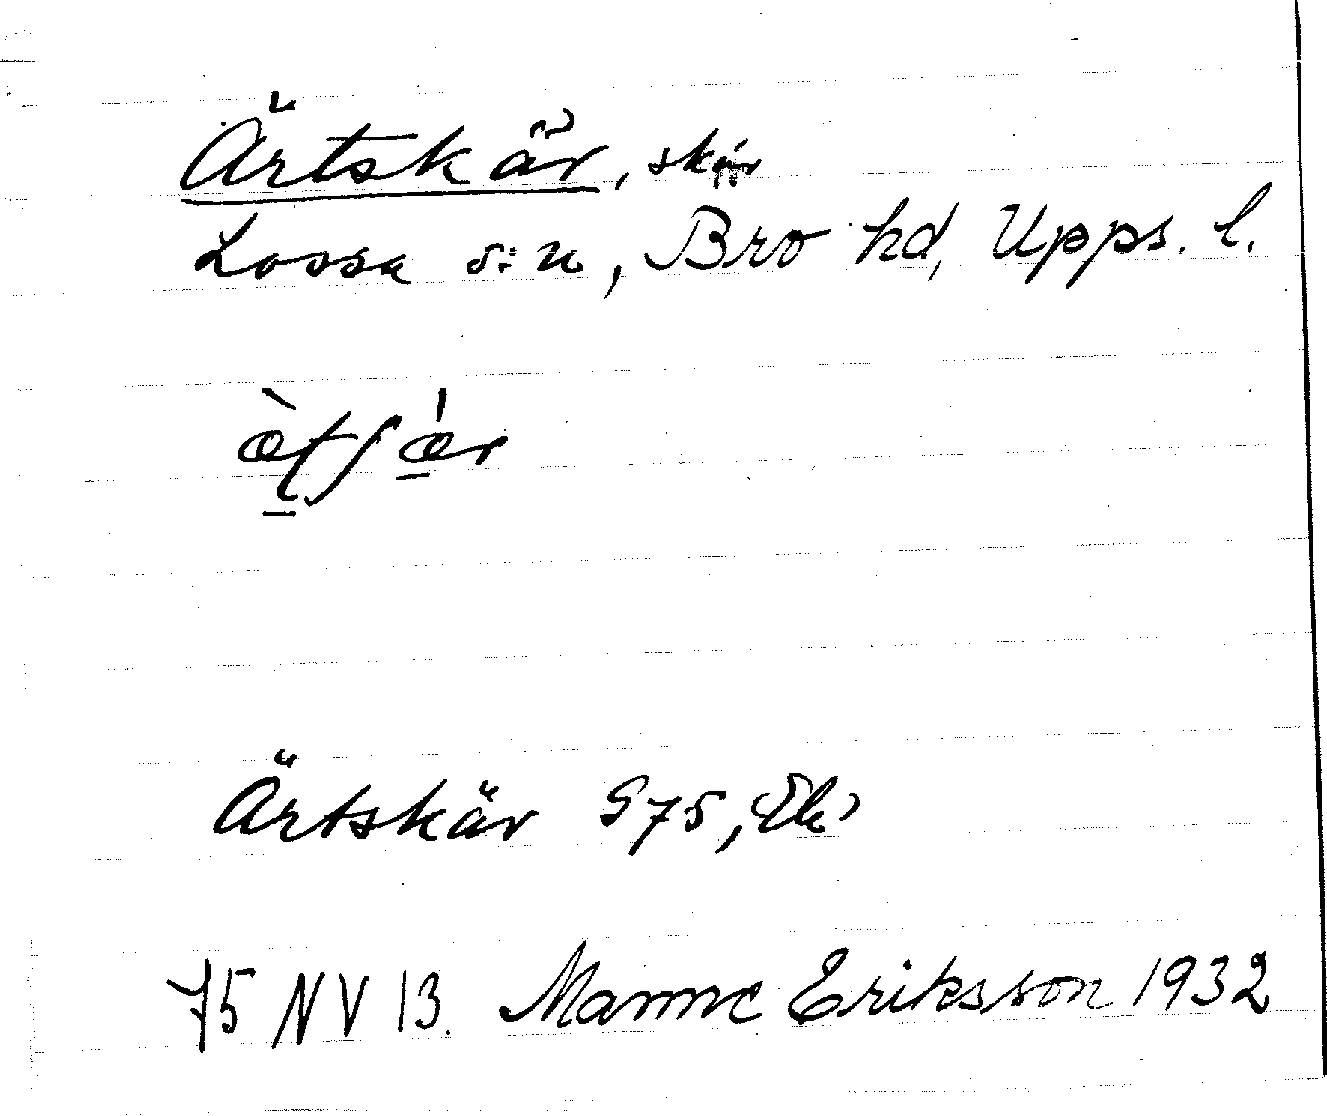 Ärtskär, skär
Lossa s:n, Bro hd, Upps. l.
Ärtskär G75, Ek
75 NV 13. Manne Eriksson 1932